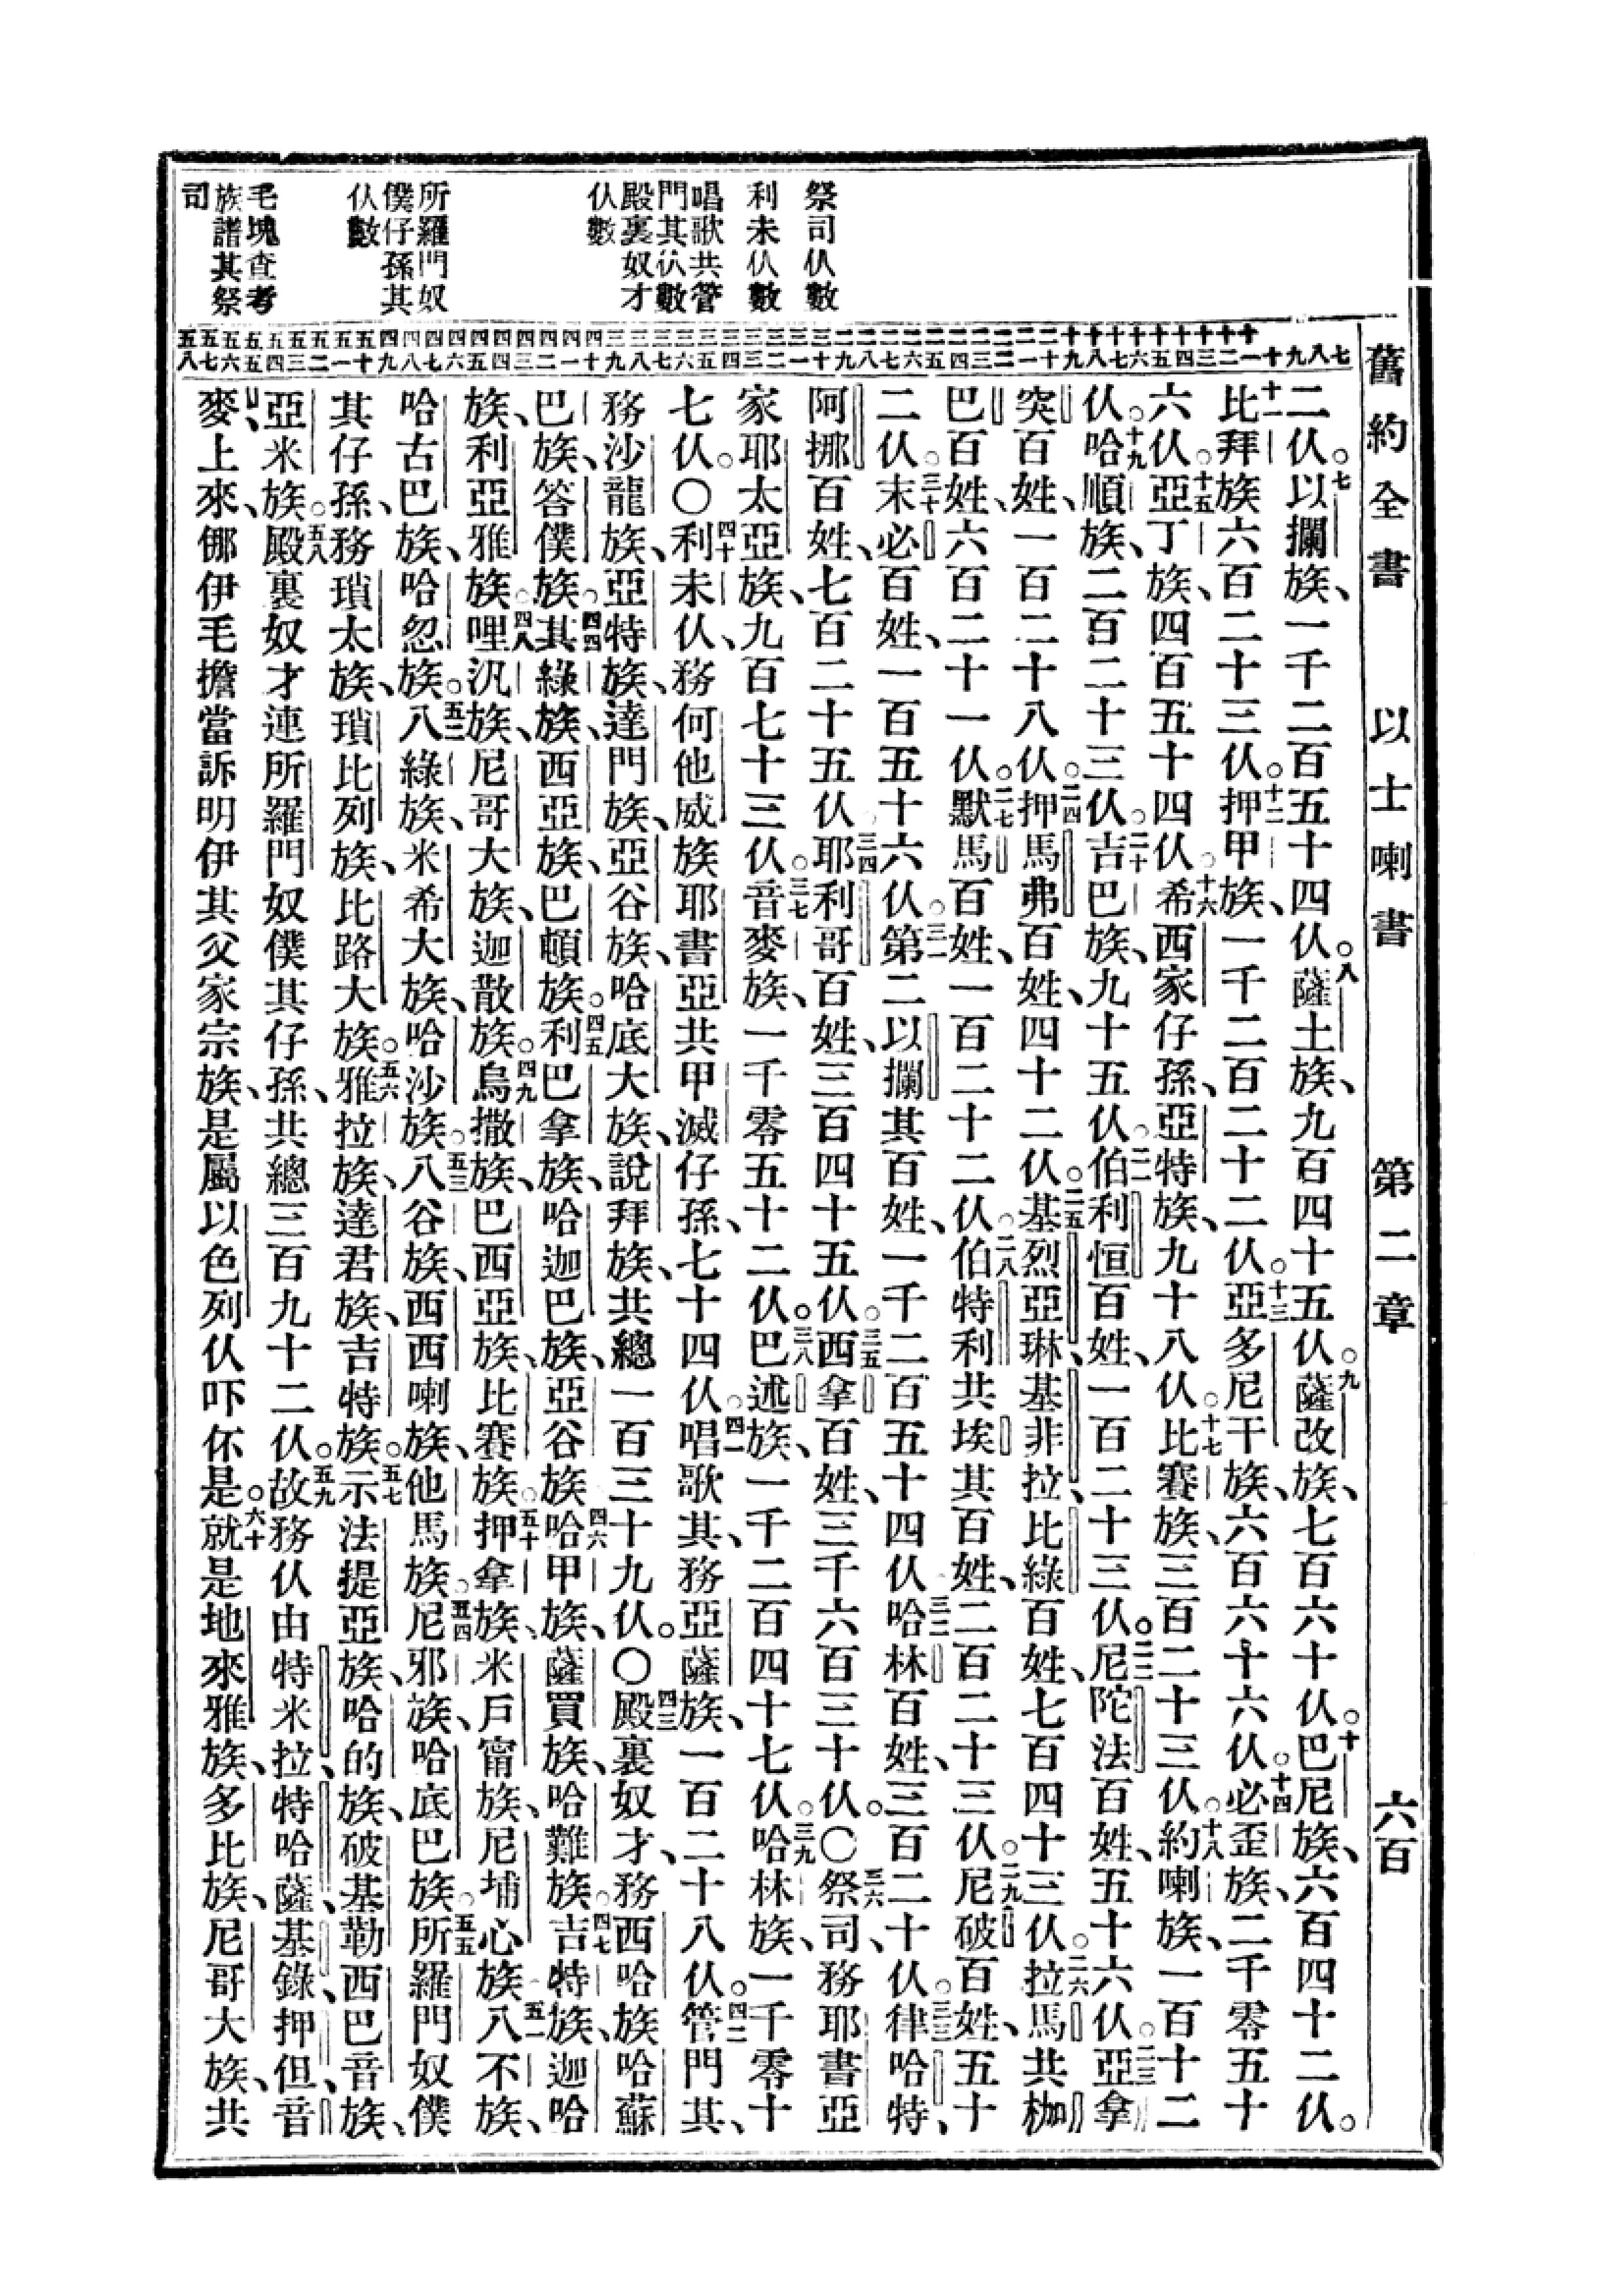 舊約全書 以士喇書 第二章 六百
祭司仈數
利未仈數
唱歌共管
門其仈數
殿裏奴才
仈數
所羅門奴
僕仔孫其
仈數
毛塊查考
族譜其祭
司
七 八 九 十 十一 十二 十三 十四 十五 十六 十七 十八 十九 二十 二一 二二 二三 二四 二五 二六 二七 二八 二九 三十 三一 三二 三三 三四 三五 三六 三七 三八 三九 四十 四一 四二 四三 四四 四五 四六 四七 四八 四九 五十 五一 五二 五三 五四 五五 五六 五七 五八
二仈。七以攔族、一千二百五十四仈。八薩土族、九百四十五仈。九薩改族、七百六十仈。十巴尼族、六百四十二仈。
十一比拜族六百二十三仈。十二押甲族、一千二百二十二仈。十三亞多尼干族、六百六十六仈。十四必歪族、二千零五十
六仈。十五亞丁族、四百五十四仈。十六希西家仔孫、亞特族、九十八仈。十七比賽族、三百二十三仈。十八約喇族、一百十二
仈。十九哈順族、二百二十三仈。二十吉巴族、九十五仈。二一伯利恒百姓、一百二十三仈。二二尼陀法百姓、五十六仈。二三亞拿
突百姓、一百二十八仈。二四押馬弗百姓、四十二仈。二五基烈亞琳、基非拉、比綠百姓、七百四十三仈。二六拉馬共枷
巴百姓、六百二十一仈。二七默馬百姓、一百二十二仈。二八伯特利共埃其百姓、二百二十三仈。二九尼破百姓、五十
二仈。三十末必百姓、一百五十六仈。三一第二以攔其百姓、一千二百五十四仈三二哈林百姓、三百二十仈。三三律哈特、
阿挪百姓、七百二十五仈三四耶利哥百姓、三百四十五仈。三五西拿百姓、三千六百三十仈。〇三六祭司、務耶書亞
家耶太亞族、九百七十三仈。三七音麥族、一千零五十二仈。三八巴述族、一千二百四十七仈。三九哈林族、一千零十
七仈。〇四十利未仈、務何他威族耶書亞共甲滅仔孫、七十四仈。四一唱歌其、務亞薩族、一百二十八仈。四二管門其、
務沙龍族、亞特族、達門族、亞谷族、哈底大族、說拜族、共總一百三十九仈。〇四三殿裏奴才、務西哈族哈蘇
巴族、答僕族。四四其綠族、西亞族、巴頓族。四五利巴拿族、哈迦巴族、亞谷族四六哈甲族、薩買族、哈難族。四七吉特族、迦哈
族、利亞雅族。四八哩汎族、尼哥大族、迦散族。四九烏撒族、巴西亞族、比賽族。五十押拿族、米戶甯族、尼埔心族五一八不族、
哈古巴族、哈忽族。五二八綠族、米希大族、哈沙族。五三八谷族、西西喇族、他馬族。五四尼邪族、哈底巴族。五五所羅門奴僕
其仔孫、務瑣太族、瑣比列族、比路大族。五六雅拉族、達君族、吉特族。五七示法提亞族、哈的族、破基勒西巴音族、
亞米族。五八殿裏奴才連所羅門奴僕其仔孫、共總三百九十二仈。五九故務仈由特米拉、特哈薩、基錄、押但、音
麥、上來、㑚伊毛擔當訴明伊其父家宗族、是屬以色列仈吓伓是。六十就是地來雅族、多比族、尼哥大族、共